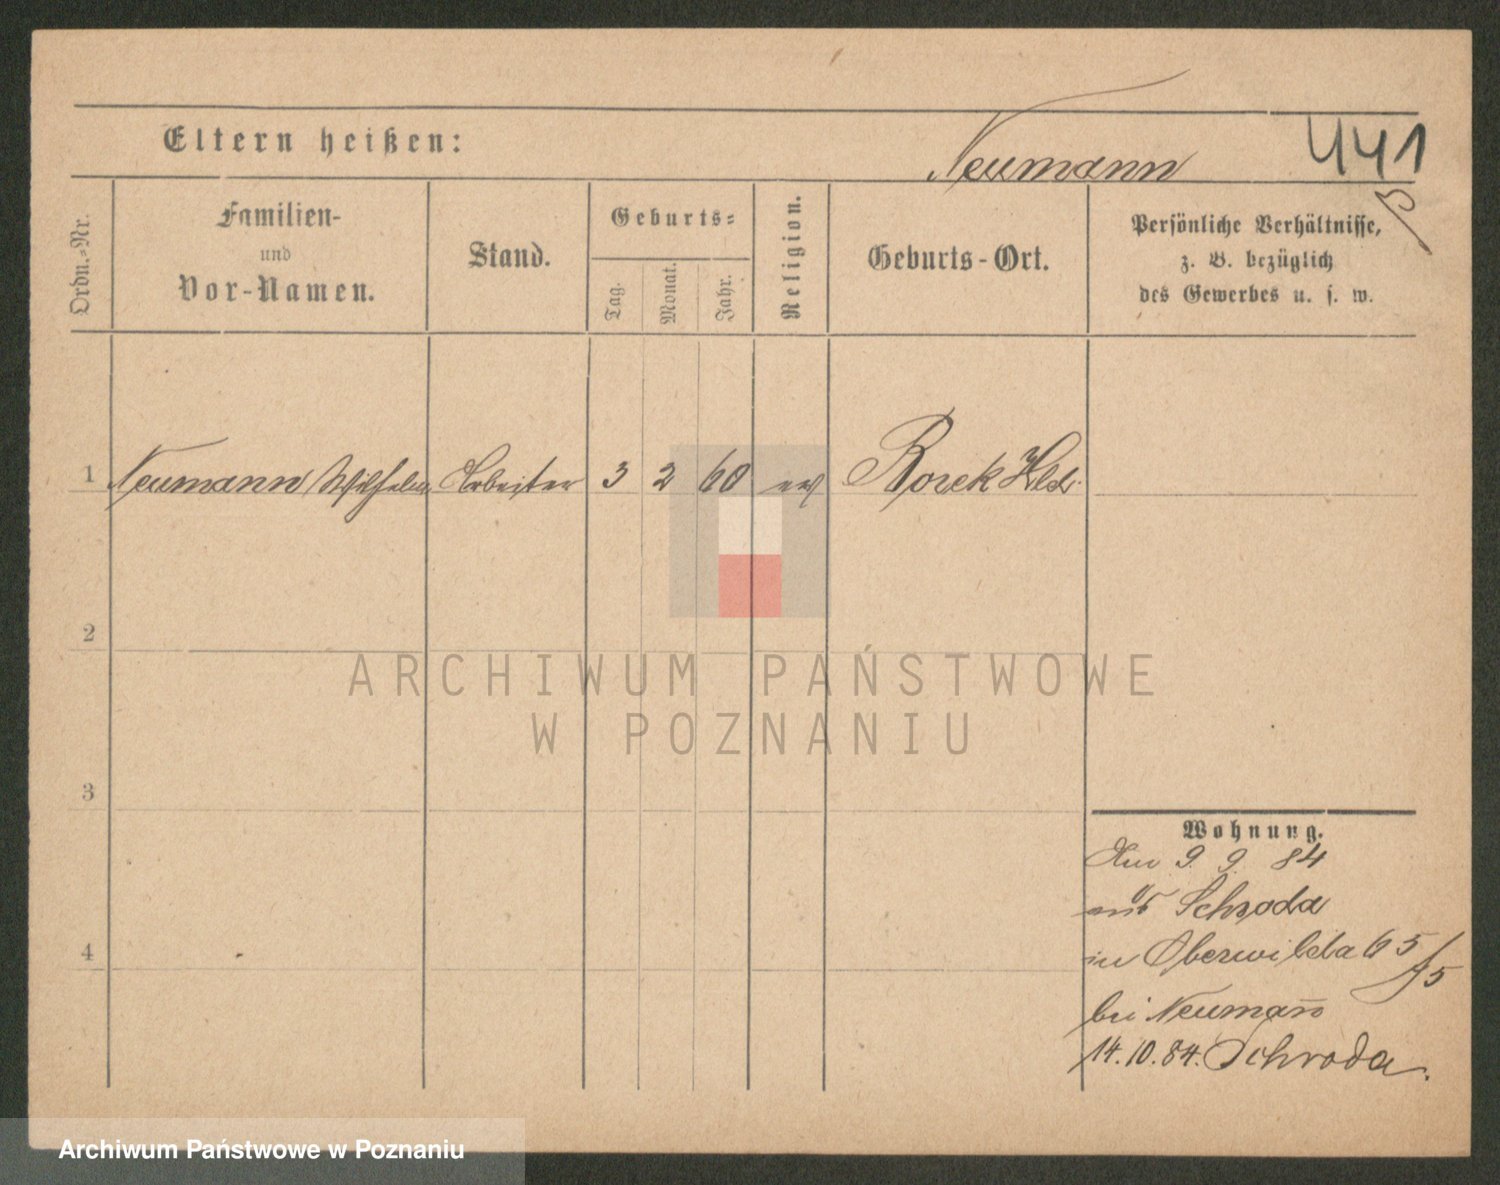 Eltern heißen:
Neumann
441
Ordn.-Nr.
Familien-
und
Vor-Namen.
Stand.
Geburts-
Tag.
Monat.
Jahr.
Religion.
Geburts-Ort.
Persönliche Verhältnisse,
z. B. bezüglich
des Gewerbes u. s. w.
1 Neumann Wilhelm Arbeiter 3 2 60 ev Borek Hld.
2
ARCHIWUM PAŃSTWOWE
W POZNANIU
3
Wohnung.
Am 9. 9. 84
aus Schroda
4
in Oberwilda 65
bei Neumann
14.10.84. Schroda.
Archiwum Państwowe w Poznaniu